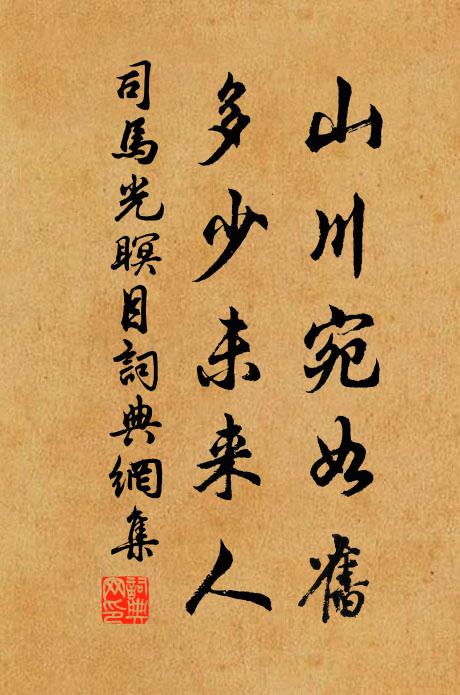 山川宛如舊
多少未来人
司馬光瞑目詞典網集
詞典网印